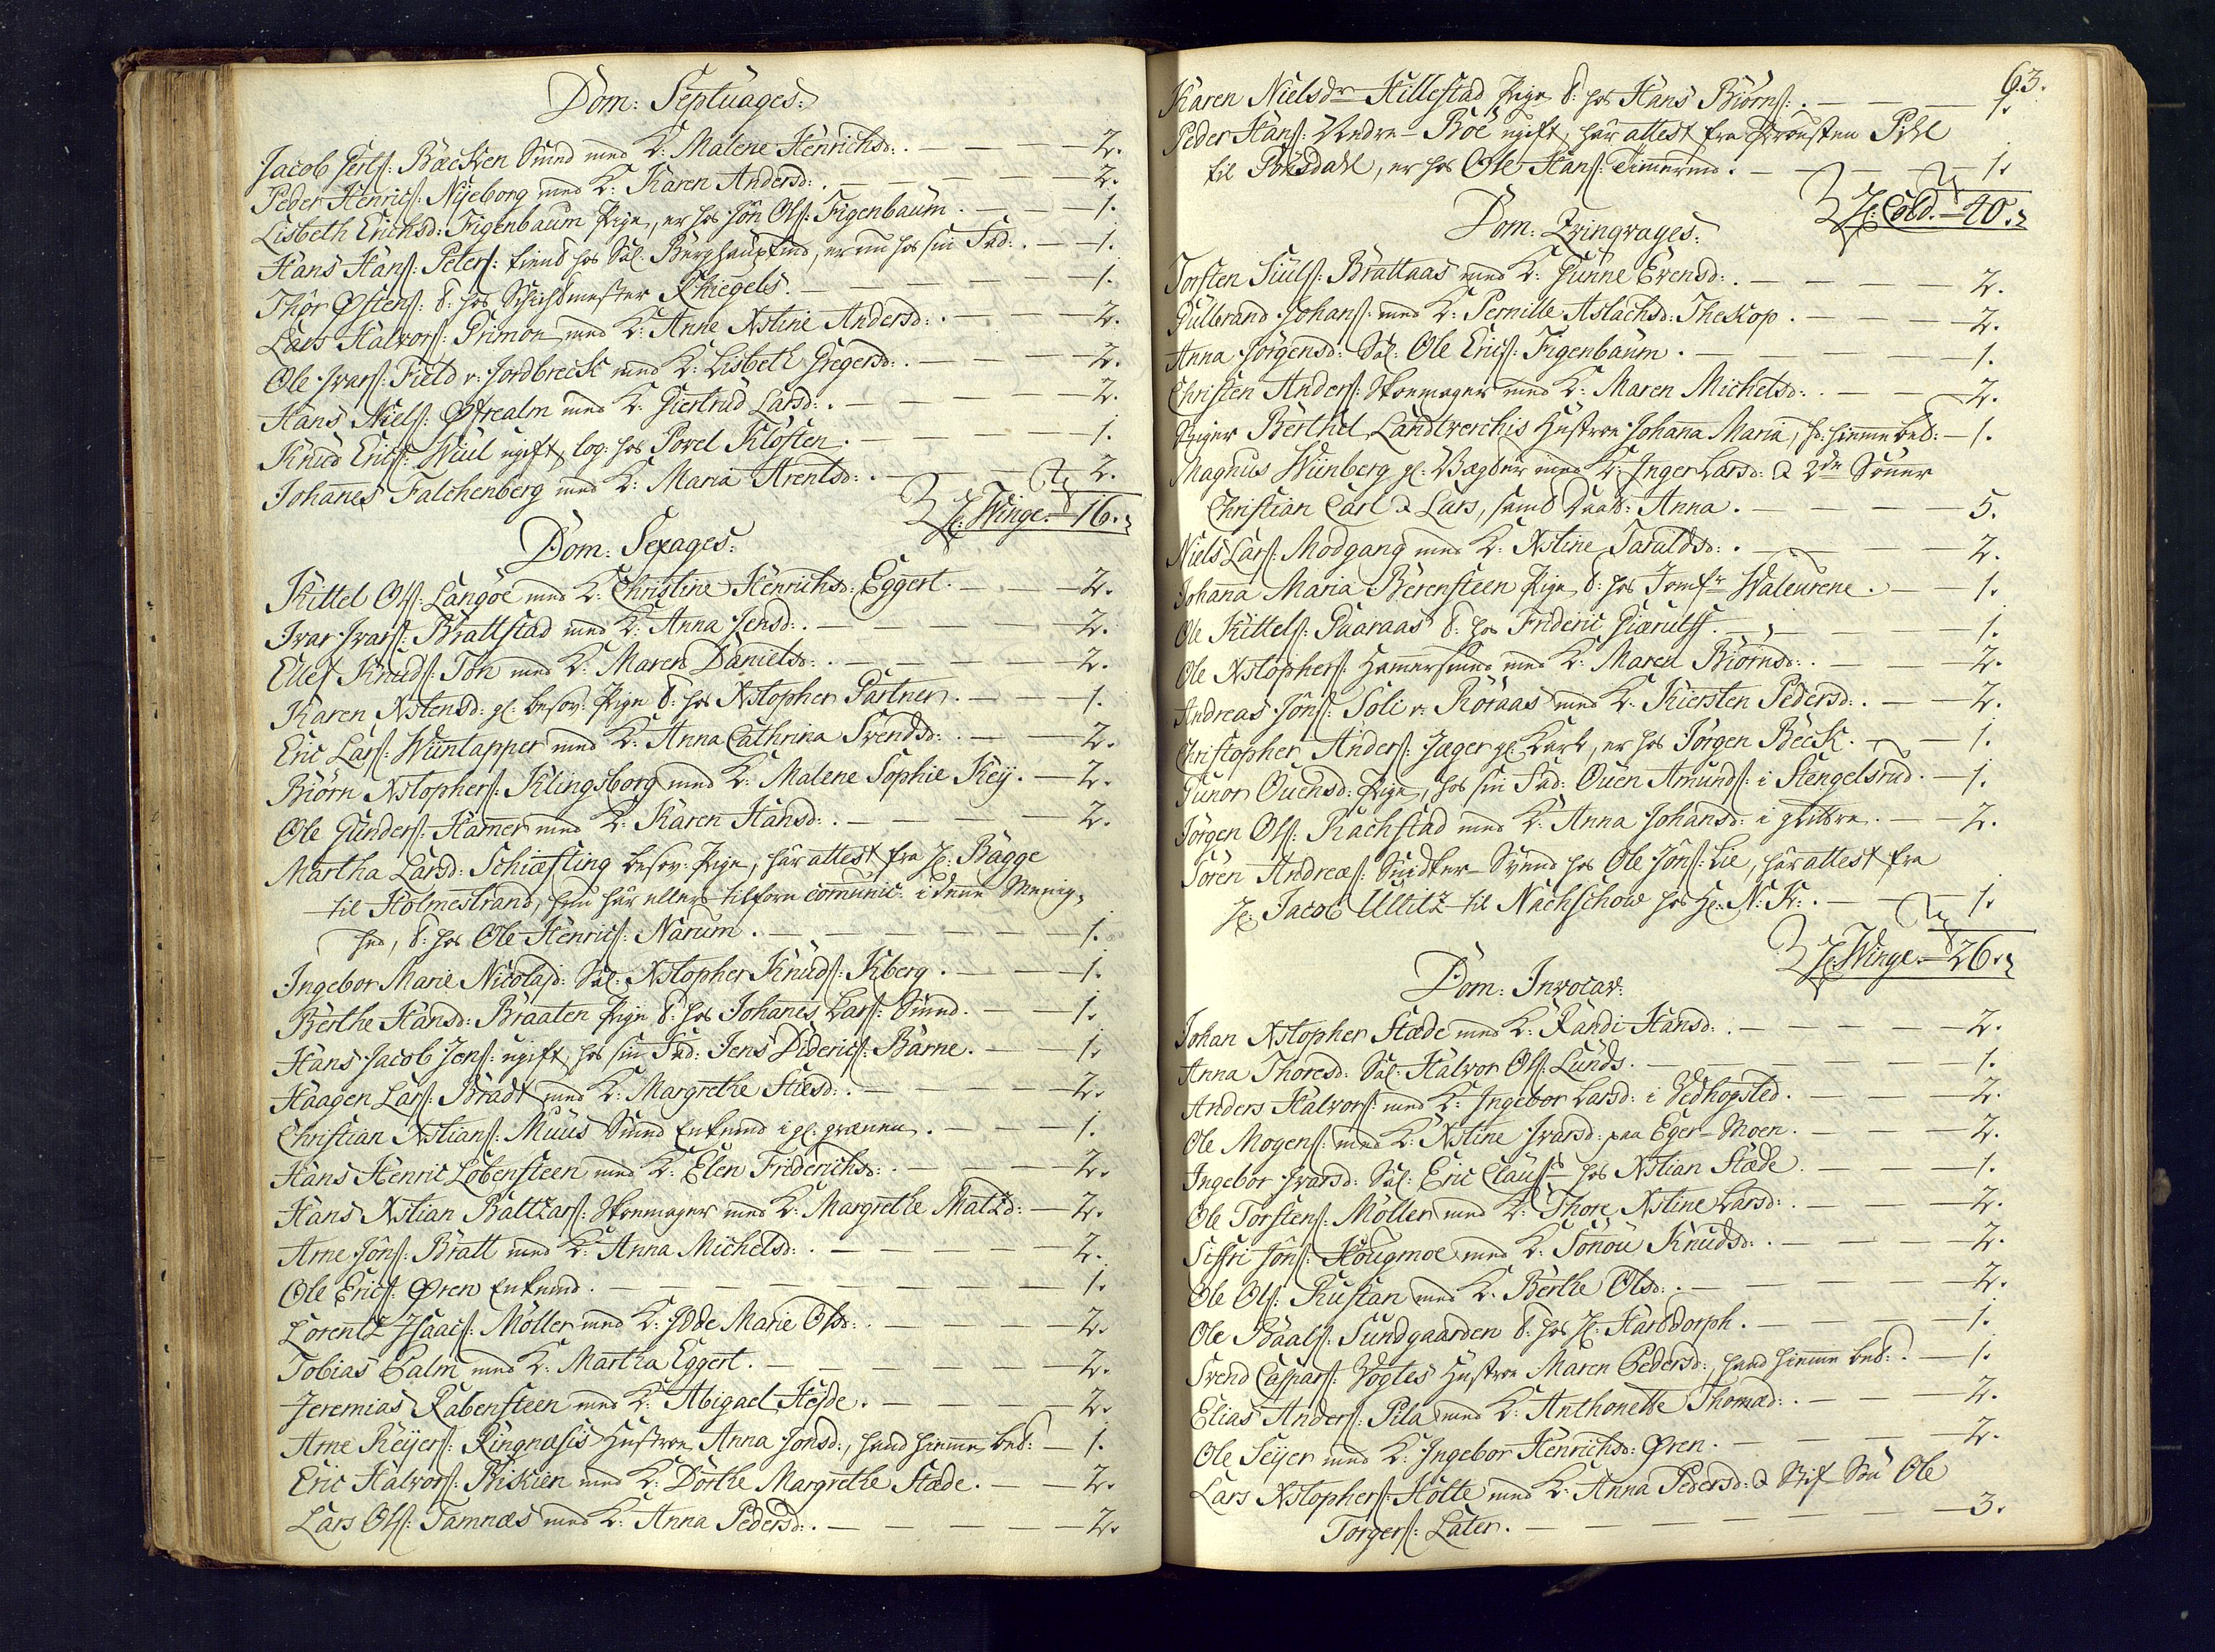 Dom: Septuages:
Jacob Gertſ: Bæcken Smed med K: Malene Henrichsd: . — — — 2.
Peder Henricſ: Nyeborg med K: Karen Andersd: . — — — 2.
Lisbeth Erichsd: Figenbaum Pige, er hos Jôn Olſ: Figenbaum . — — 1.
Hans Hanſ: Peterſ: tiend hos Sal: Berghauptmd, er nu hos sin Fad: . — 1.
Thôr Østenſ: d: hos Schichtmester Khiegels . — — — 1.
Lars Halvorſ: Grimon med K: Anne Xstine Andersd: . — — — 2.
Ole Ivarſ: Field v. Jordbreck med K: Lisbeth Gregersd: . — — — 2.
Hans Nielſ: Østrealm med K: Giertrud Larsd: . — — — 2.
Knud Ericſ: Wiul ugift, log: hos Povel Klôsten . — — — 1.
Johanes Falchenberg med K: Maria Arentsd: . — — — 2.
H: Winge. — 16.
Dom: Sexages:
Kittel Olſ: Langöe med K: Christine Henrichsd: Eggert. — — — 2.
Ivar Ivarſ: Brattstad med K: Anna Jensd: . — — — 2.
Ellef Knudſ: Toh med K: Maren Danielsd: . — — — 2.
Karen Xstensd: gl: besov: Pige d: hos Xstopher Gartner . — — 1.
Eric Larſ: Wiintapper med K: Anna Cathrina Svendsd: . — — 2.
Biörn Xstopherſ: Klingsborg med K: Malene Sophie Keÿ. — 2.
Ole Gunderſ: Hamer med K: Karen Hansd: . — — — 2.
Martha Larsd: Schiæfting besov: Pige, har attest fra H: Bagge
til Holmestrand, hun har ellers tilforn comunic: i denne Menig-
hed, d: hos Ole Henricſ: Narum . — — — 1.
Ingebor Marie Nicolajd: Sal: Xstopher Knudſ: Kberg . — — 1.
Berthe Hansd: Braaten Pige d: hos Johanes Larſ: Smed. — — 1.
Hans Jacob Jenſ: ugift, hos sin Fad: Jens Didericſ: Barne. — — 1.
Haagen Larſ: Bradt med K: Margrethe Hæsd: . — — — 2.
Christian Xstianſ: Muus Smed Enkemd i gl: grænen . — — 1.
Hans Henric Löbensteen med K: Elen Friderichsd: . — — 2.
Hans Xstian Baltzarſ: Skoemager med K: Margrethe Matzd: — 2.
Arne Jônſ: Bratt med K: Anna Michelsd: . — — — 2.
Ole Ericſ: Øren Enkemd. — — — 1.
Lorentz Isaacſ: Möller med K: Idde Marie Olsd: . — — — 2.
Tobias Palm med K: Martha Eggert. — — — 2.
Jeremias Rabensteen med K: Abigael Heyde. — — — 2.
Arne Reyerſ: Ringnæsis Hustroe Anna Jonsd:, hand hiemme bed: — 1.
Eric Halvorſ: Biskien med K: Dorthe Margrethe Stæde. — — 2.
Lars Olſ: Tamnæs med K: Anna Pedersd: . — — — 2.
63.
Karen Nielsdr Hillestad Pige d: hos Hans Biörnſ: . — — — 1.
Peder Hanſ: Nedre-Böe ugift, har attest fra Provsten Pihl
til Porsdahl, er hos Ole Hanſ: Timermd. — — — 1.
H: Cold. — 40.
Dom: Qvinqvages:
Torsten Siulſ: Brattaas med K: Gunne Evensd: . — — — 2.
Gulbrand Johanſ: med K: Pernille Aslachsd: Theskop . — — 2.
Anna Jörgensd: Sal: Ole Ericſ: Figenbaum . — — — 1.
Christen Anderſ: Skoemager med K: Maren Michelsd: . — — 2.
Stiger Berthel Landtverchis Hustroe Johana Maria, hd: hiemme bed: — 1.
Magnus Wiinberg gl: Vægter med K: Inger Larsd: & 2de Sönner
Christian Carl & Lars, samt Daat: Anna . — — — 5.
Niels Larſ: Modgang med K: Xstine Taraldsd: . — — — 2.
Johana Maria Berensteen Pige d: hos Jomfr Waleurene . — — 1.
Ole Kittelſ: Paaraas d: hos Frideric Giærulff . — — 1.
Ole Xstopherſ: Hamersmed med K: Maren Biörnsd: . — — 2.
Andreas Jônſ: Soli v. Röraas med K: Kiersten Pedersd: . — — 2.
Christopher Anderſ: Jæger gl: Karl, er hos Jörgen Beck . — — 1.
Gunor Ouensd: Pige, hos sin Fad: Ouen Amundſ: i Stengelsrud. — 1.
Jörgen Olſ: Rachstad med K: Anna Johansd: i glitre . — — 2.
Sören Andreæſ: Snidker-Svend hos Ole Jônſ: Lie, har attest fra
H: Jacob Ullitz til Nachschow hos H: N: K: . — — 1.
H: Winge. — 26.
Dom: Invocav:
Johan Xstopher Stæde med K: Randi Hansd: . — — — 2.
Anna Thoresd: Sal: Halvor Olſ: Lunds . — — — 1.
Anders Halvorſ: med K: Ingebor Larsd: i Vedhopsted. — — 2.
Ole Mogenſ: med K: Xstine Ivarsd: paa Eger-Moen . — — 2.
Ingebor Ivarsd: Sal: Eric Clauſ: hos Xstian Stæde . — — 1.
Ole Torstenſ: Möller med K: Thore Xstine Larsd: . — — 2.
Siffri Jônſ: Hougmoe med K: Sönou Knudsd: . — — 2.
Ole Olſ: Rustan med K: Berthe Olsd: . — — — 2.
Ole Paalſ: Sundgaarden d: hos H: Harddorph . — — — 1.
Svend Casparſ: Vogtes Hustroe Maren Pedersd:, hand hiemme bed: . — 1.
Elias Anderſ: Pila med K: Anthonette Thomæd: . — — — 2.
Ole Seyer med K: Ingebor Henrichsd: Øren. — — — 2.
Lars Xstopherſ: Holte med K: Anna Pedersd: & Stif Sön Ole
Torgerſ: Later. — — — 3.